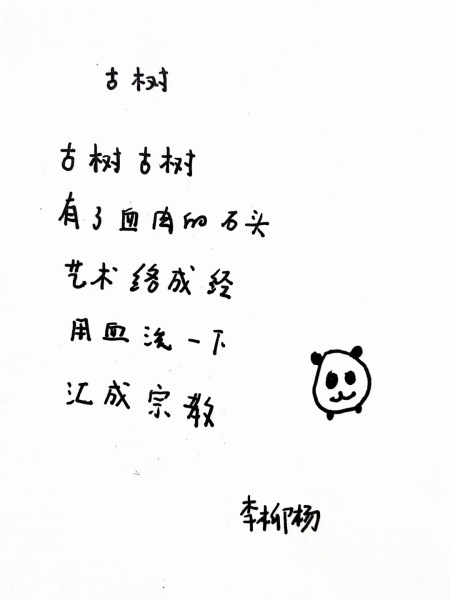 古树
古树古树
有了血肉的石头
艺术络成经
用血浇一下
汇成宗教
李柳杨